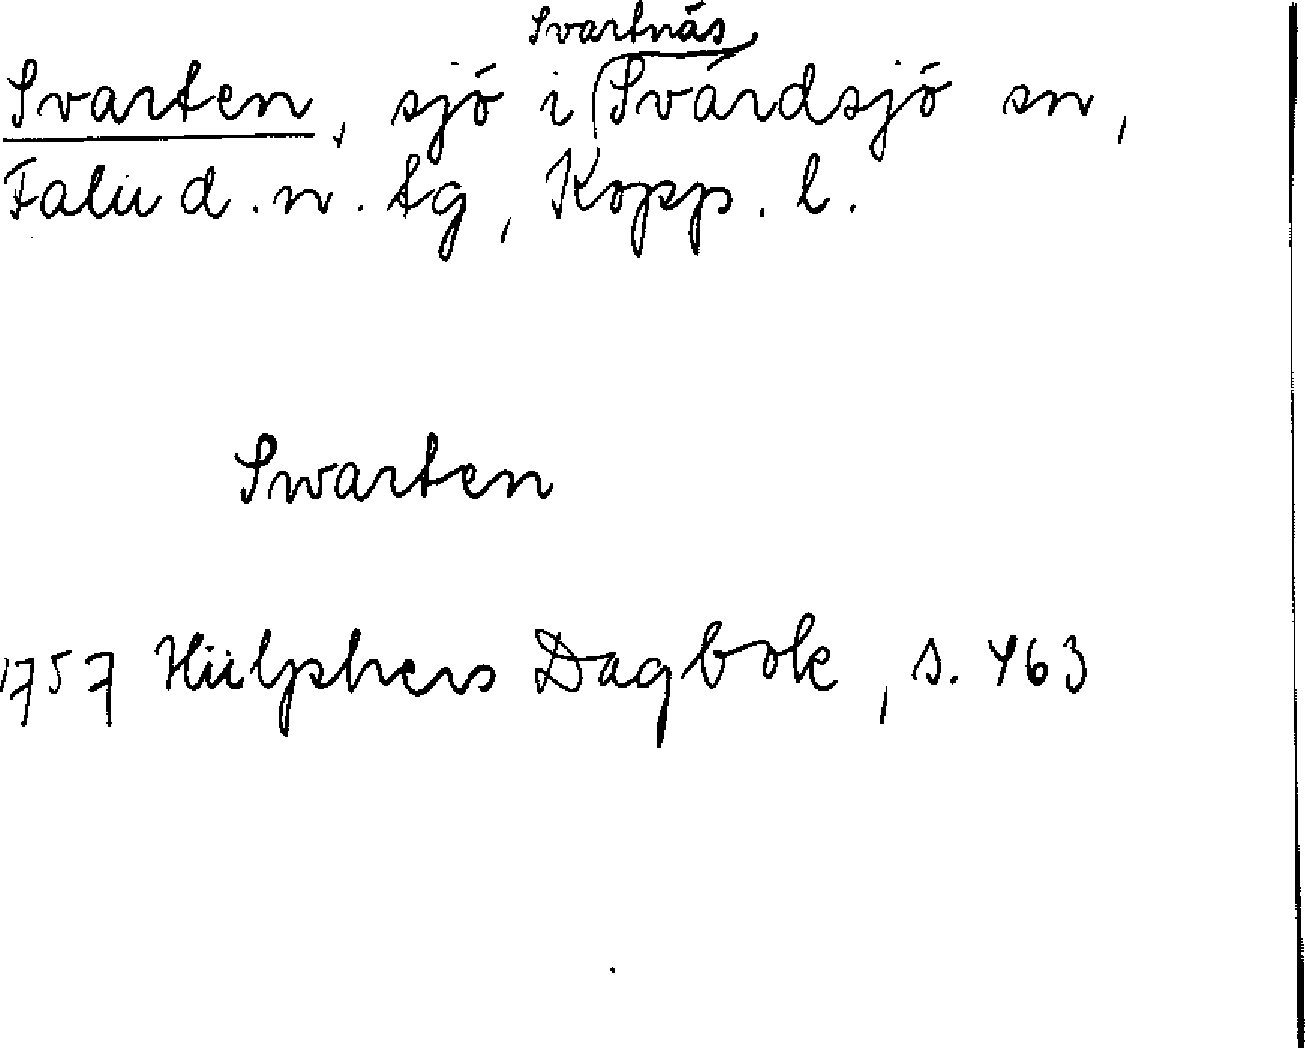 Svartnäs
Svarten, sjö i Svärdsjö sn,
Falu d. n. tg, Kopp. l.
Swarten
1757 Hülphers Dagbok, s. 463